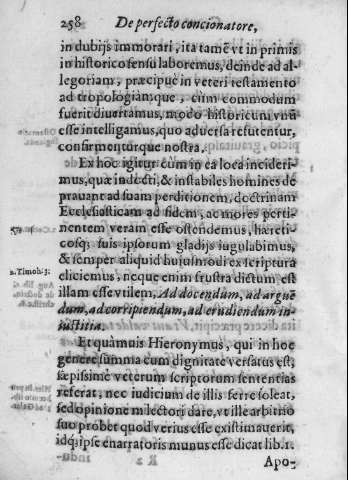 258 De perfecto concionatore,
in dubijs immorari, ita tamē vt in primis
in historico sensu laboremus, deinde ad al-
legoriam, præcipuè in veteri testamento
ad tropologiamque, cùm commodum
fuerit diuertamus, modo historicum vnū
esse intelligamus, quo aduersa refutentur,
confirmenturque nostra.
Ex hoc igitur cùm in ea loca inciderimus,
mus, quæ indocti, & instabiles homines de
prauant ad suam perditionem, doctrinam
Ecclesiasticam ad fidem, ac mores perti-
nentem veram esse ostendemus, hæreti-
cosq; suis ipsorum gladijs iugulabimus,
& semper aliquid huiusmodi ex scriptura
eliciemus, neque enim frustra dictum est
2. Timoh. 3:
illam esse vtilem, Ad docendum, ad arguē
dum, ad corripiendum, ad erudiendum in
iustitia.
Et quamuis Hieronymus, qui in hoc
genere summa cum dignitate versatus est,
sæpissimè veterum scriptorum sententias
referat, nec iudicium de illis ferre soleat,
sed opinionem lectori dare, vt ille arbitrio
suo probet quod verius esse existimauerit,
idq; ipse enarratoris munus esse dicat lib. 1.
Apo-